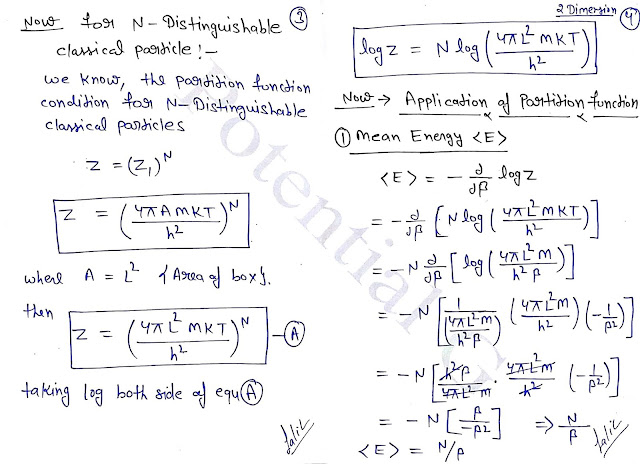 Now for N-Distinguishable ③
classical particle! -
we know, the partition function
condition for N-Distinguishable
classical particles
Z = (Z₁)^N
Z = (4πAmKT/h²)^N
where A = L² {Area of box}.
then
Z = (4πL²mKT/h²)^N —Ⓐ
taking log both side of equ Ⓐ
Jalil
2 Dimension ④
log Z = N log (4πL²mKT/h²)
Now → Application of Partition function
① Mean Energy <E>
<E> = - ∂/∂β log Z
= - ∂/∂β [N log (4πL²mKT/h²)]
= -N ∂/∂β [log (4πL²m/h²β)]
= -N [1/(4πL²m/h²β) (4πL²m/h²) (-1/β²)]
= -N [h²β/4πL²m · 4πL²m/h² (-1/β²)]
= -N [β/-β²] ⇒ N/β
<E> = N/β
Jalil
Potential G